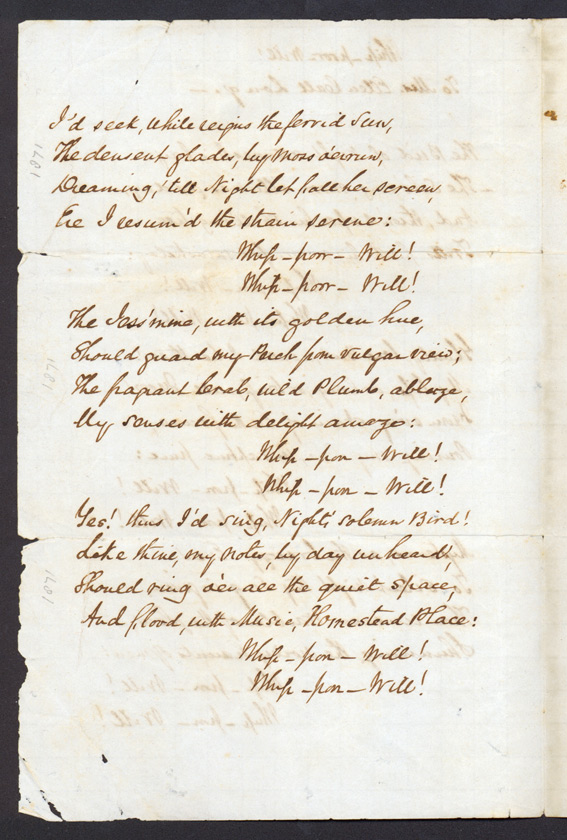 I'd seek, while reigns the fervid Sun,
The densest glades, by Moss o'errun,
Dreaming, till Night let fall her screen,
Ere I resum'd the strain serene:
Whip-poor-Will!
Whip-poor-Will!
The Jess'mine, with its golden hue,
Should guard my Perch from vulgar view;
The fragrant Crab, wild Plumb, ablaze,
My senses with delight amaze:
Whip-poor-Will!
Whip-poor-Will!
Yes! thus I'd sing, Night's solemn Bird!
Like thine, my notes, by day unheard,
Should ring o'er all the quiet space,
And flood, with Music, Homestead Place:
Whip-poor-Will!
Whip-poor-Will!
1871
1871
1871